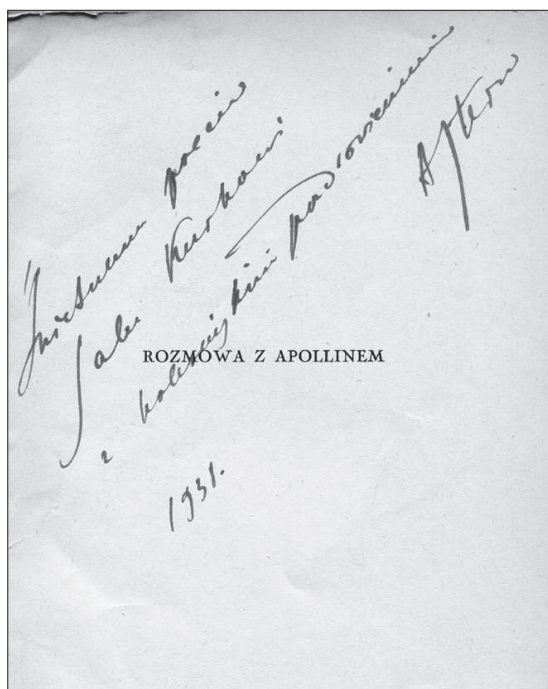 Świetnemu poecie
Jalu Kurkowi
z koleżeńskim pozdrowieniem
A Stern
ROZMOWA Z APOLLINEM
1931.